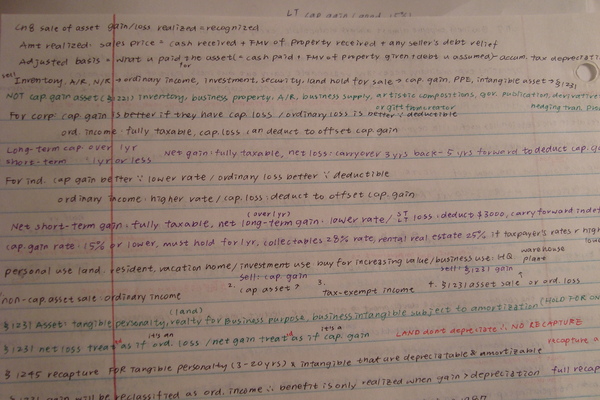 LT cap gain (good 15%)
Ch8 sale of asset gain/loss realized = recognized
Amt realized: sales price = cash received + FMV of property received + any seller's debt relief
Adjusted basis = what u paid for the asset (= cash paid + FMV of property given + debt u assumed) - accum. tax depreciation
sell Inventory, A/R, N/R → ordinary income, investment, security, land hold for sale → cap. gain, PPE, intangible asset → §1231
NOT cap. gain asset (§1221) inventory, business property, A/R, business supply, artistic compositions, gov. publication, derivatives
or gift from creator hedging tran.
For corp. cap. gain is better if they have cap. loss / ordinary loss is better ∵ deductible
ord. income: fully taxable, cap. loss can deduct to offset cap. gain
Long-term cap over 1yr Net gain: fully taxable, net loss: carryover 3 yrs back - 5 yrs forward to deduct cap. ga
short-term 1yr or less
For ind. cap gain better ∵ lower rate / ordinary loss better ∵ deductible
ordinary income: higher rate / cap. loss: deduct to offset cap. gain
(over 1yr)
Net short-term gain: fully taxable, net long-term gain: lower rate / ST LT loss: deduct $3000, carry forward indef
cap. gain rate: 15% or lower, must hold for 1yr, collectables 28% rate, rental real estate 25% if taxpayer's rate r high
lowe
personal use land, resident, vacation home / investment use buy for increasing value / business use: HQ, warehouse plant
sell: cap. gain sell: §1231 gain
2. cap. asset? 3. Tax-exempt income 4. §1231 asset sale or ord. loss
non-cap. asset sale: ordinary income
(land)
§1231 Asset: tangible personalty, realty for business purpose, business intangible subject to amortization (HOLD FOR ON
§1231 net loss treated as if it's an ord. loss / net gain treated as if it's a cap. gain LAND don't depreciate ∴ NO RECAPTURE
recapture a
§1245 recapture FOR Tangible personalty (3-20yrs) & intangible that are depreciatable & amortizable
§1231 gain will be reclassified as ord. income ∴ benefit is only realized when gain > depreciation full recap